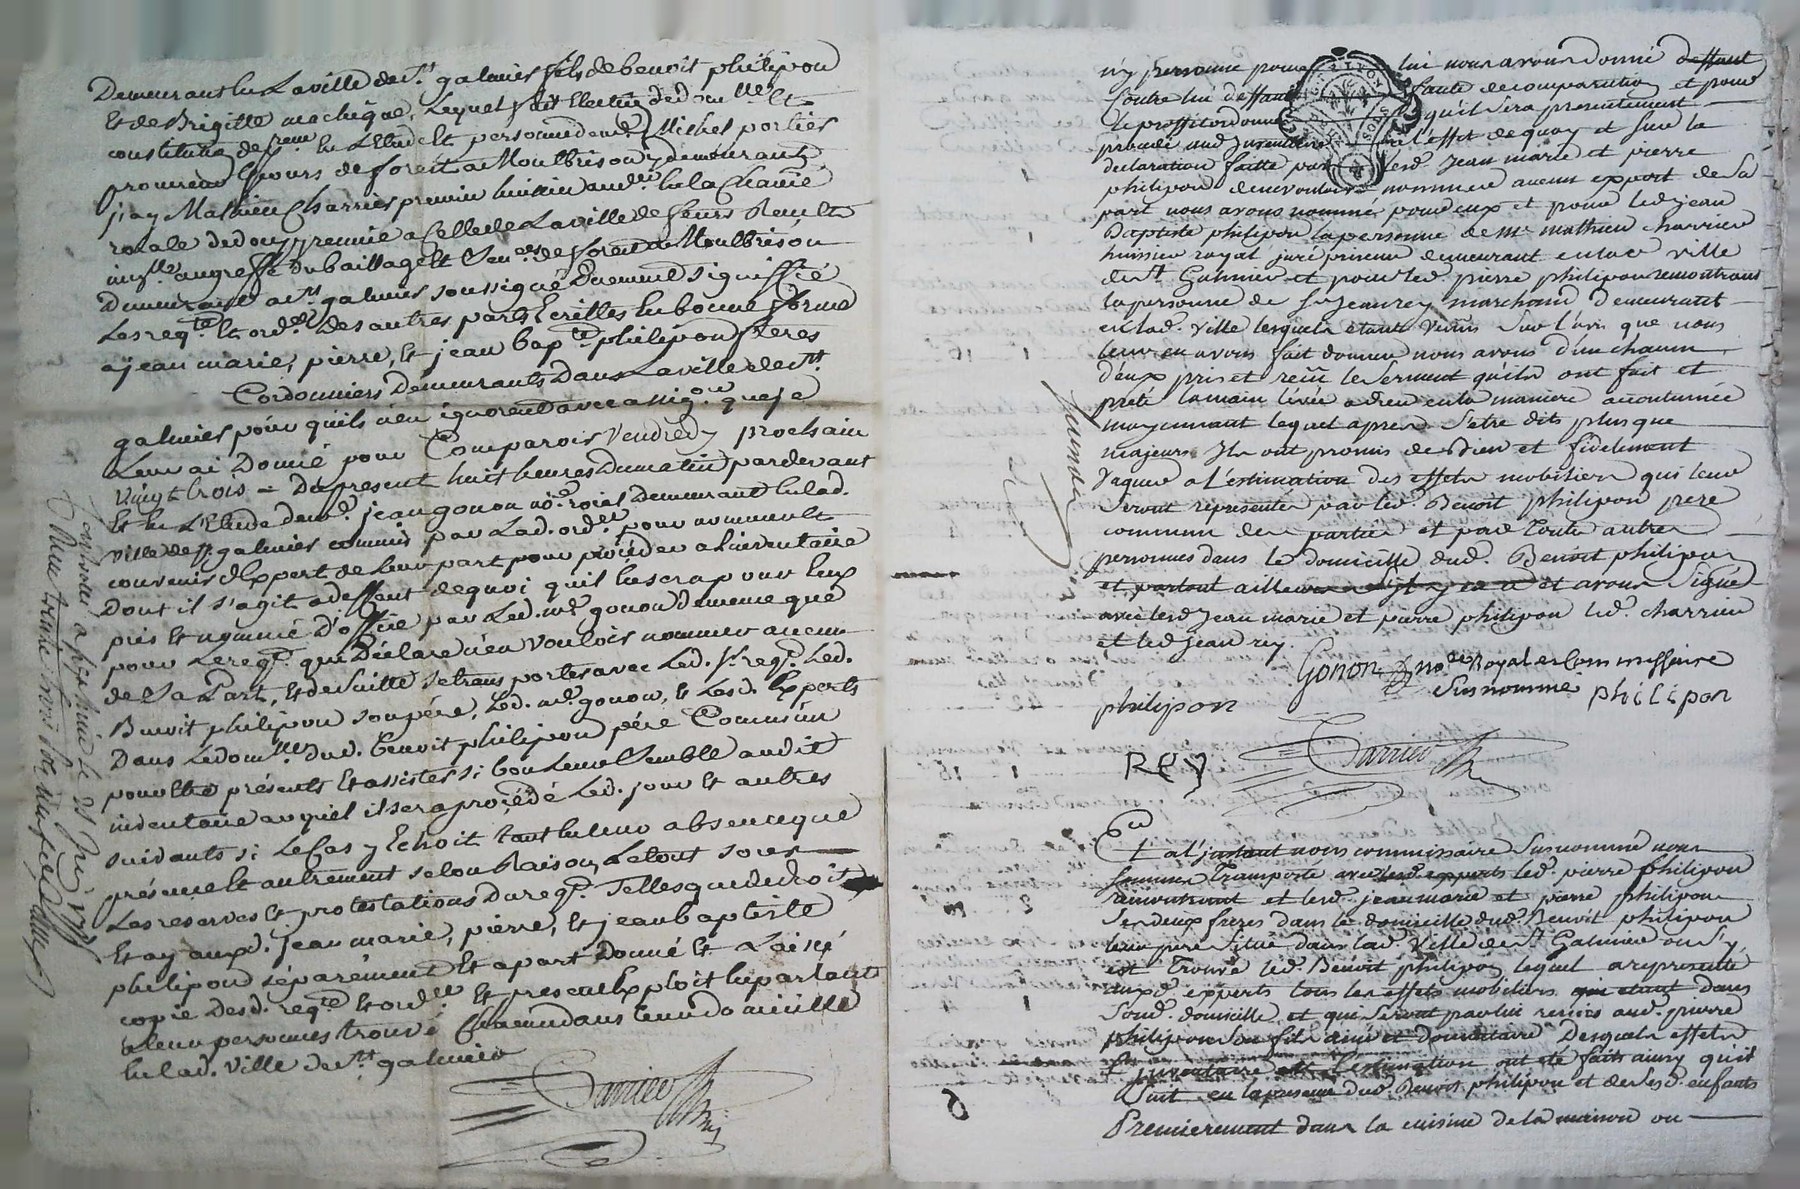 Demeurant en La ville de st galmier fils de benoit philipon
et de Brigitte machigue, Lequel fait Election de domlle et
constitution de en L'Etude et personne de me Michel portier
procureur Es cours de forest a Montbrison y demeurant
j'ay Mathieu Charrier premier huissier aud. en la Chatnie
roiale de donzy reunie a Celle de La ville de feurs Receu et
au greffe du baillage et Senee de forest a Montbrison
Demeurant a st galmier soussigné Duement signiffié
Les reqte et ordce des autres parts Ecrittes en bonne forme
a jean marie, pierre, et jean bapte philipon freres
Cordonniers Demeurants Dans La ville de st
galmier pour qu'ils n'en ignorent avec assigon que je
Leur ai Donné pour Comparois vendredy prochain
vingt trois = Du present huit heures du matin pardevant
et en L'Etude de me jean gonon nore roial Demeurant en lad.
ville de st galmier commis par Lad. ordce pour nomment
convenir d'Expert de Leur part pour proceder a l'inventaire
Dont il s'agit a deffaut de quoi qu'il en sera pour Eux
pris et nommé d'office par Led. me gonon de meme que
pour Le reqt. qui Déclare n'en vouloir nommer aucun
de Sa Part, et de suitte se transporter avec Led. sr reqt. Led.
Benoit philipon son pere, Led. me gonon, et Lesd. Experts
Dans Le domlle dud. benoit philipon père Commun
pour Etre présents et assister si bon Leur Semble audit
inventaire auquel il sera procédé Led. jour et autres
suivants si Le Cas y Echoit tant en leur absence que
présence et autrement selon Raison, Le tout sous
Les reserves et protestations du reqt. Telles que de droit
Et ay auxd. jean marie, pierre, et jean baptiste
philipon séparément et a part Donné et Laissé
copie desd. reqte et ordce et present Exploit en parlant
a leur personnes trouvé Chacun dans leur domicille
en lad. ville de st galmier
Charrier
n'y personne pour lui nous avons donné deffaut
Contre lui deffaut faute de comparution et pour
le proffit ordonné qu'il sera presentement
procedé aud. Inventaire a l'effet de quoy et sur la
declaration faitte par lesd. Jean marie et pierre
philipon de ne vouloir nommer aucun expert de Sa
part nous avons nommé pour eux et pour led. jean
Baptiste philipon la personne de me mathieu charrier
huissier royal juré priseur demeurant en lad. ville
de st Galmier et pour led. pierre philipon remontrant
la personne de sr jean rey marchand demeurant
en lad. ville lesquels etant venus Sur l'avis que nous
leur en avons fait donner nous avons d'un chacun
d'eux pris et reçu le Serment qu'ils ont fait et
preté la main levée a dieu en la maniere accoutumée
moyennant lequel apres S'etre dits plus que
majeurs Ils ont promis de bien et fidelement
Vaquer a l'estimation des effets mobiliers qui leur
Seront representés par led. Benoit philipon pere
commun des parties et par toute autres
personnes dans le domicille dud. Benoit philipon
et partout ailleurs et avons Signé
avec lesd. Jean marie et pierre philipon led. charrier
et led. jean rey.
Gonon nore Royal et Commissaire
Susnommé philipon
philipon
REY Charrier
Et a l'instant nous commissaire Susnommé nous
Sommes transporté avec lesd. experts led. pierre philipon
remontrant et lesd. jean marie et pierre philipon
Ses deux freres dans le domicille dud. Benoit philipon
leur pere Situé dans lad. ville de st Galmier ou S'y
est trouvé led. Benoit philipon lequel a representé
auxd. experts tous les effets mobiliers dans
Sond. domicille et qui Seront par lui remis aud. pierre
philipon Son fils ainé et donnataire Desquels effets
l'inventaire et l'estimation ont été faits ainsy qu'il
Suit en la presence dud. Benoit philipon et de Sesd. enfants
Premierement dans la cuisine de la maison ou
6